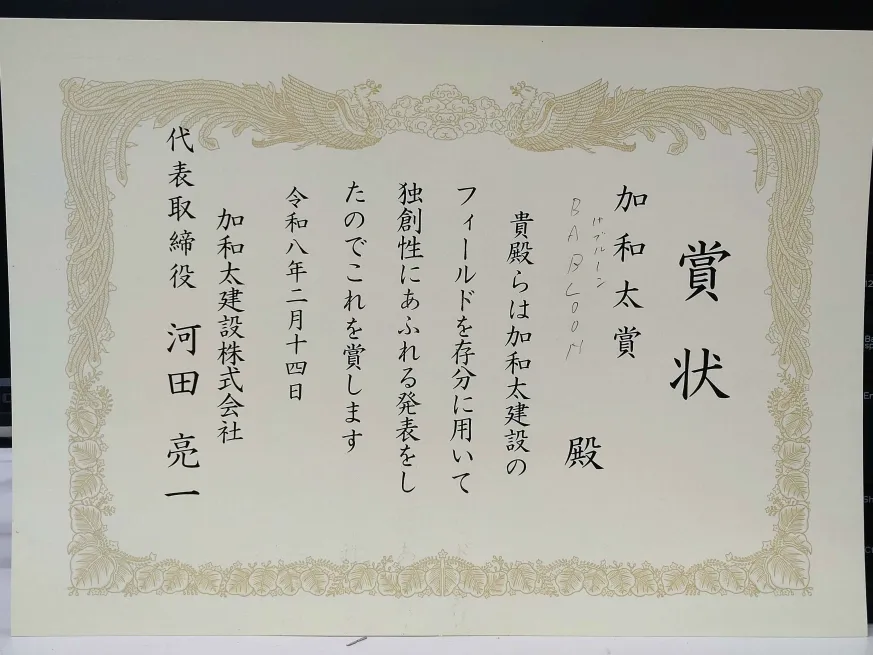 賞状
加和太賞
BABLOOM 殿
貴殿らは加和太建設の
フィールドを存分に用いて
独創性にあふれる発表をし
たのでこれを賞します
令和八年二月十四日
加和太建設株式会社
代表取締役 河田 亮一